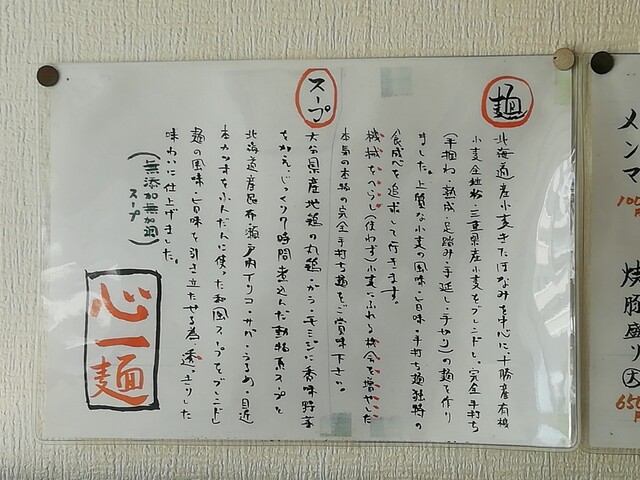 麺
北海道産小麦きたほなみを中心に十勝産有機
小麦全粒粉・三重県産小麦をブレンドし、完全手打ち
(手捏ね・熟成・足踏み・手延し・手切り)の麺を作り
ました。上質な小麦の風味・旨味・手打ち麺独特の
食感を追求して行きます。
機械をへらし(使わず)小麦にふれる機会を増やした
本気の本物の完全手打ち麺をご賞味下さい。
スープ
大分県産地鶏の丸鶏・ガラ・モミジに香味野菜
をかえ、じっくり7時間煮込んだ動物系スープと
北海道産昆布・瀬戸内イリコ・サバ・うるめ・目近
本カツオをふんだんに使った和風スープをブレンドし
麺の風味・旨味を引き立たせる為、透っきりした
味わいに仕上げました。
(無添加無加調
スープ)
心一麺
メンマ
100円
焼豚盛り 大
650円